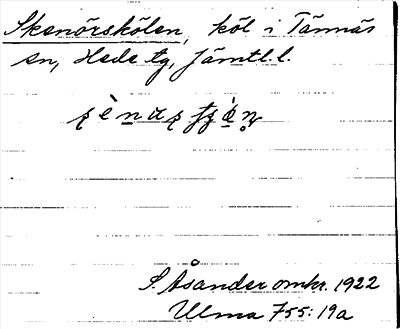 Skenörskölen, köl i Tännäs
sn, Hede tg, Jämtl. l.
S. Åsander omkr. 1922
Ulma 755:19a